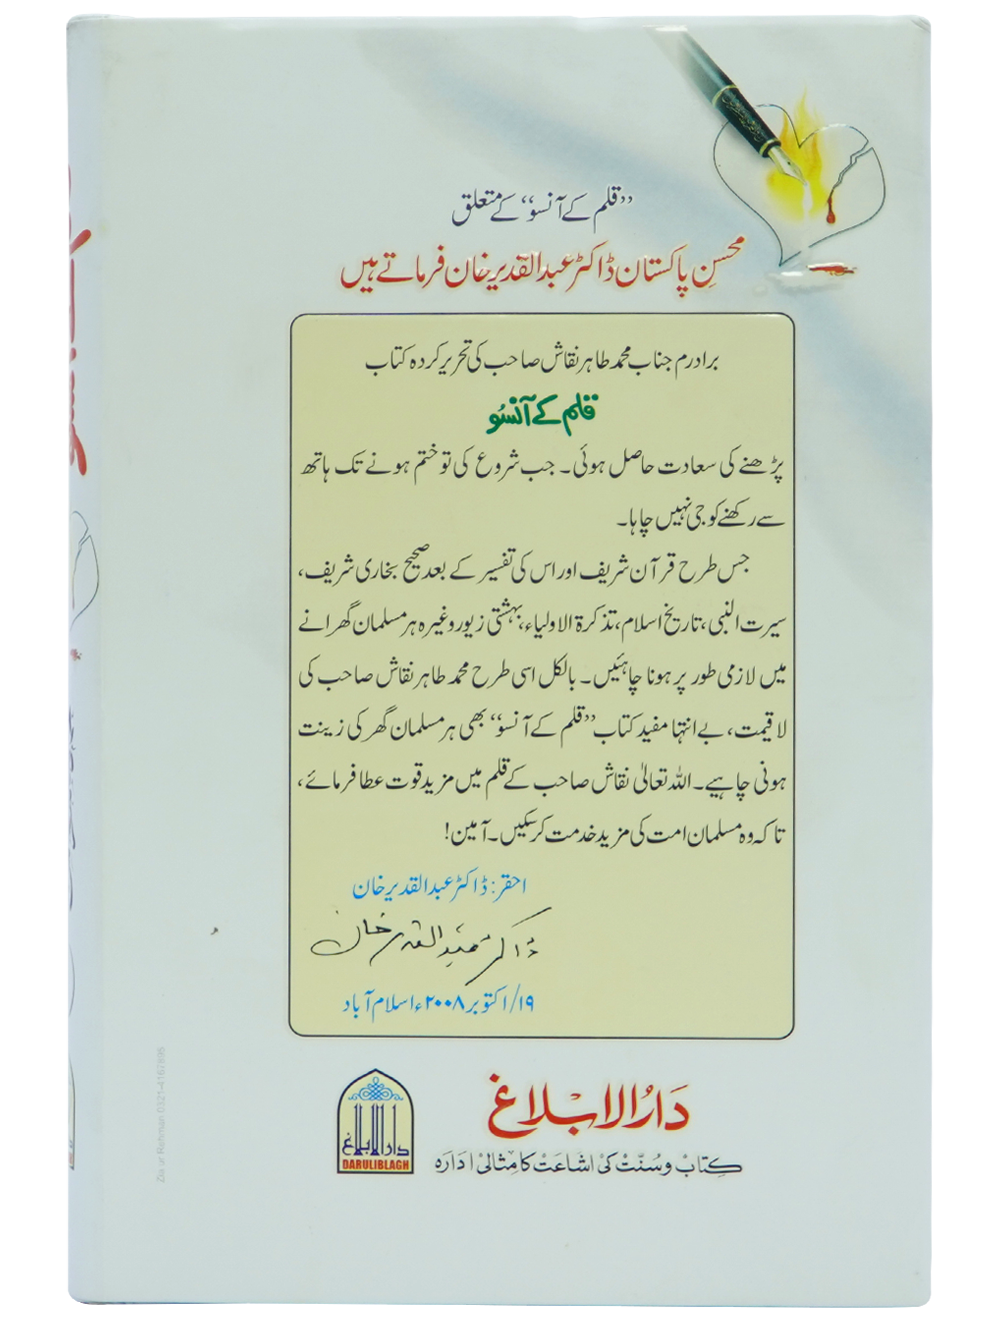 ”قلم کے آنسو“ کے متعلق
محسنِ پاکستان ڈاکٹر عبدالقدیر خان فرماتے ہیں
برادرم جناب محمد طاہر نقاش صاحب کی تحریر کردہ کتاب
قلم کے آنسُو
پڑھنے کی سعادت حاصل ہوئی۔ جب شروع کی تو ختم ہونے تک ہاتھ
سے رکھنے کو جی نہیں چاہا۔
جس طرح قرآن شریف اور اس کی تفسیر کے بعد صحیح بخاری شریف،
سیرت النبی، تاریخ اسلام، تذکرۃ الاولیاء، بہشتی زیور وغیرہ ہر مسلمان گھرانے
میں لازمی طور پر ہونا چاہئیں۔ بالکل اسی طرح محمد طاہر نقاش صاحب کی
لا قیمت، بے انتہا مفید کتاب ”قلم کے آنسو“ بھی ہر مسلمان گھر کی زینت
ہونی چاہیے۔ اللہ تعالیٰ نقاش صاحب کے قلم میں مزید قوت عطا فرمائے،
تاکہ وہ مسلمان امت کی مزید خدمت کر سکیں۔ آمین!
احقر: ڈاکٹر عبدالقدیر خان
ڈاکٹر عبدالقدیر خان
۱۹/اکتوبر ۲۰۰۸ء اسلام آباد
دَارُالابلاغ
کِتابُ و سُنّت کی اشاعت کا مثالی ادارہ
دارالابلاغ
DARULIBLAGH
Zia ur Rehman 0321-4167895